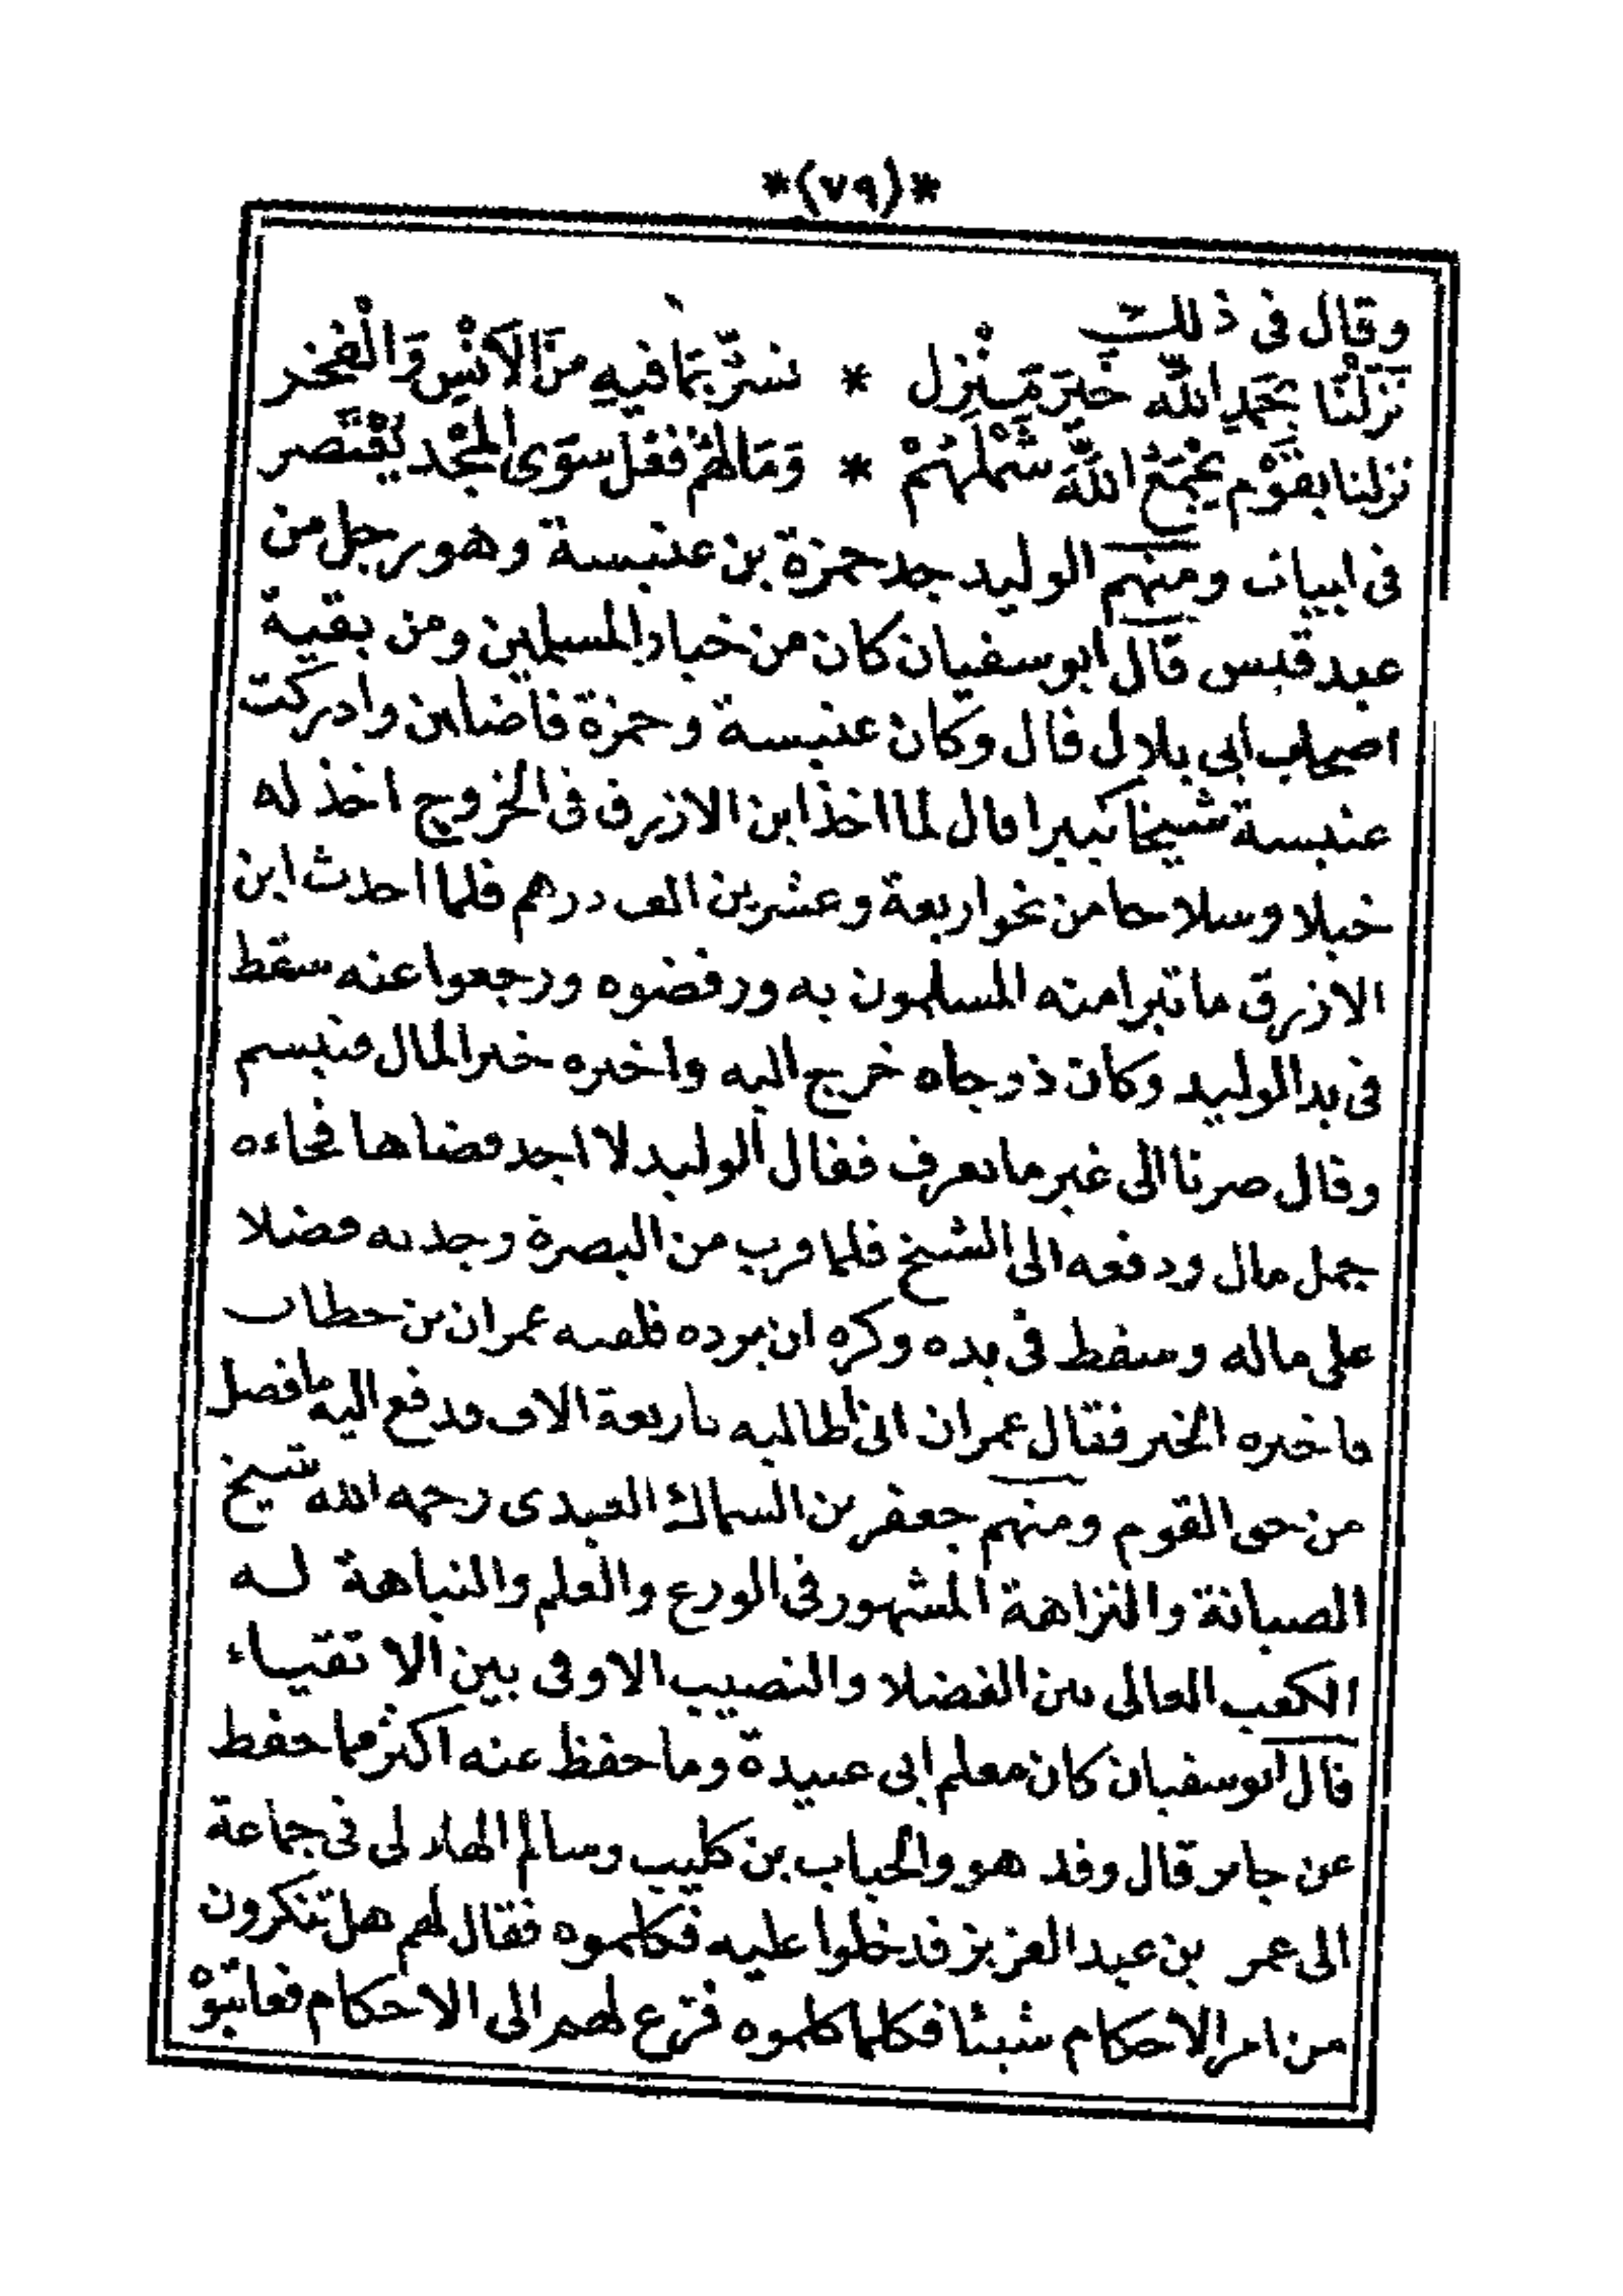 *(٧٩)*
وقال فى ذلك
نَزَلْنَا بحَمدِ اللهِ خَيرَ مَنْزِل * نسرّ بمَا فيهِ منَ الاَنْسِ وَالْفخر
نزلنا بقَوْم يَجْمَعُ اللهُ شَمْلَهُمْ * وَمَا لهُمْ فعْل سوَى المجْد يُقْتَصر
فى ابيات ومنهم الوليد جد حمزة بن عنبسة وهو رجل من
عبد قيس قال ابو سفيان كان من خيار المسلمين ومن بقية
اصحاب ابى بلال قال وكان عنبسة وحمزة فاضلين وادركت
عنبسة شيخا كبيرا قال لما اخذ ابن الازرق فى الخروج اخذ له
خيلا وسلاحا من نحو اربعة وعشرين الف درهم فلما احدث ابن
الازرق ما تبرا منه المسلمون به ورفضوه ورجعوا عنه سقط
فى يد الوليد وكان ذو جاه خرج اليه واخبره خبر المال فتبسم
وقال صرنا الى غير ما تعرف فقال الوليد لا اجد قضاها فجاءه
جمل مال ودفعه الى الشيخ فلما قرب من البصرة وجد به فضلا
على ماله وسقط فى يده وكره ان يرده فلقيه عمران بن حطان
فاخبره الخبر فقال عمران انى اطالبه باربعة الاف فدفع اليه ما فضل
من حق القوم ومنهم جعفر بن السماك العبدى رحمه الله شيخ
الصيانة والنزاهة المشهور فى الورع والعلم والنباهة لـه
الكعب العالى بين الفضلا والنصيب الاوفى بين الاتقياء
قال ابو سفيان كان معلم ابى عبيدة وما حفظ عنه اكثر مما حفظ
عن جابر قال وفد هو والحباب بن كليب وسالم الهلالى فى جماعة
الى عمر بن عبد العزيز فدخلوا عليه فكلموه فقال لهم هل تنكرون
من امر الاحكام شيئا فكلما كلموه فزع لهم الى الاحكام فعاتبوْه